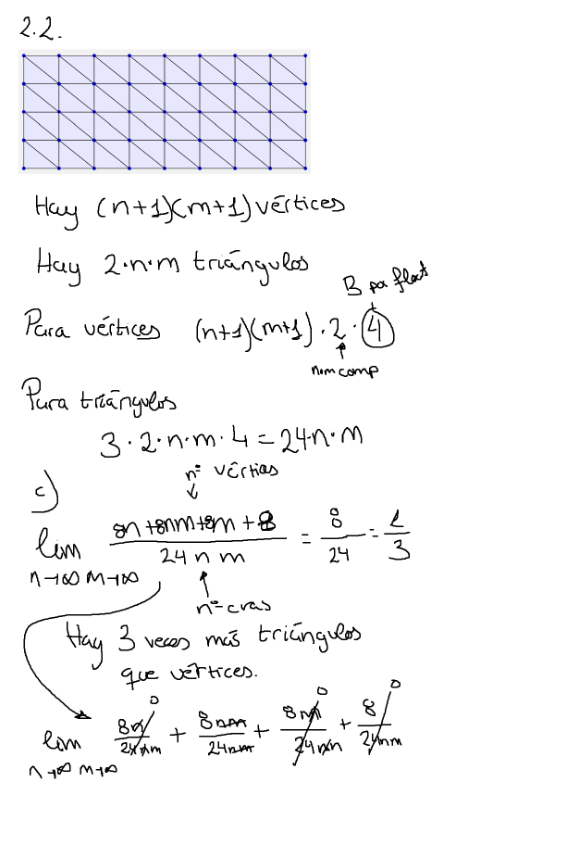 2.2.
Hay (n+1)(m+1) vértices
Hay 2·n·m triángulos
B por float
Para vértices (n+1)(m+1)·2·4
num comp
Para triángulos
3·2·n·m·4 = 24·n·m
nº vértices
c)
lim n→∞ m→∞ (8n + 8nm + 8m + 8)/(24 n m) = 8/24 = 1/3
nº caras
Hay 3 veces más triángulos
que vértices.
lim n→∞ m→∞ 8n/24nm + 8nm/24nm + 8m/24nm + 8/24nm
0 0 0